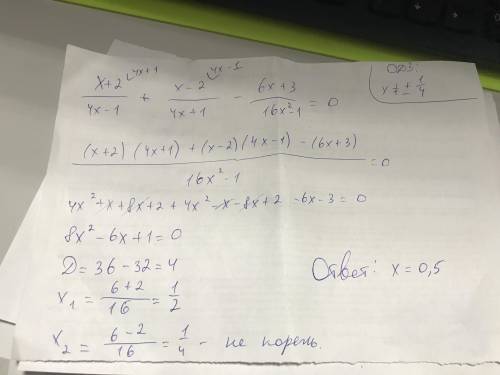 x+2 ⌣4x+1 / 4x-1 + x-2 ⌣4x-1 / 4x+1 - 6x+3 / 16x²-1 = 0
ОДЗ:
x ≠ ± 1/4
(x+2)(4x+1) + (x-2)(4x-1) - (6x+3) / 16x²-1 = 0
4x²+x+8x+2+4x²-x-8x+2-6x-3=0
8x²-6x+1=0
D=36-32=4
x₁ = 6+2 / 16 = 1/2
Ответ: x=0,5
x₂ = 6-2 / 16 = 1/4 - не корень.